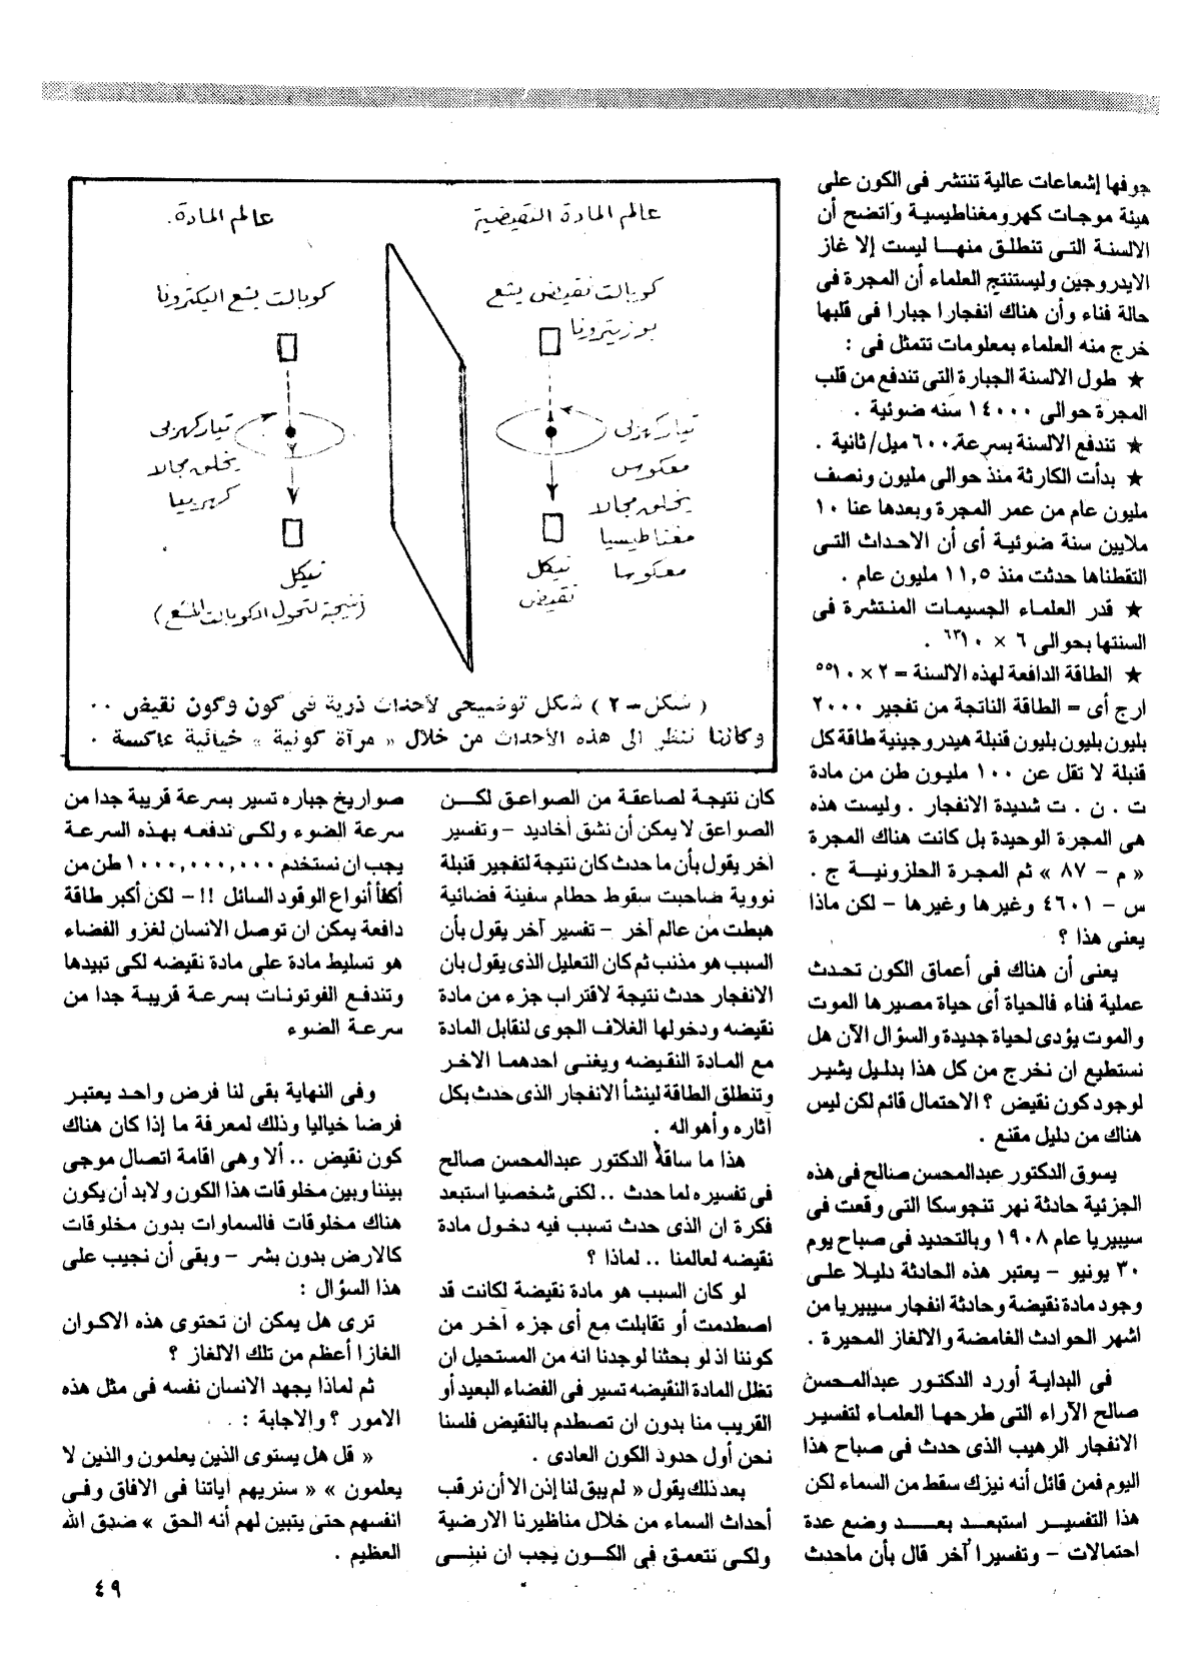 جوفها إشعاعات عالية تنتشر فى الكون على
هيئة موجات كهرومغناطيسية واتضح أن
الالسنة التى تنطلق منها ليست إلا غاز
الايدروجين وليستنتج العلماء أن المجرة فى
حالة فناء وأن هناك انفجارا جبارا فى قلبها
خرج منه العلماء بمعلومات تتمثل فى :
★ طول الالسنة الجبارة التى تندفع من قلب
المجرة حوالى ١٤٠٠٠ سنه ضوئية .
★ تندفع الالسنة بسرعة ٦٠٠ ميل/ثانية .
★ بدأت الكارثة منذ حوالى مليون ونصف
مليون عام من عمر المجرة وبعدها عنا ١٠
ملايين سنة ضوئية أى أن الاحداث التى
التقطناها حدثت منذ ١١,٥ مليون عام .
★ قدر العلماء الجسيمات المنتشرة فى
السنتها بحوالى ٦ × ١٠٦٣ .
★ الطاقة الدافعة لهذه الالسنة = ٢ × ١٠٥٥
ارج أى = الطاقة الناتجة من تفجير ٢٠٠٠
بليون بليون بليون قنبلة هيدروجينية طاقة كل
قنبلة لا تقل عن ١٠٠ مليون طن من مادة
ت . ن . ت شديدة الانفجار . وليست هذه
هى المجرة الوحيدة بل كانت هناك المجرة
« م - ٨٧ » ثم المجرة الحلزونية ج .
س - ٤٦٠١ وغيرها وغيرها - لكن ماذا
يعنى هذا ؟
يعنى أن هناك فى أعماق الكون تحدث
عملية فناء فالحياة أى حياة مصيرها الموت
والموت يؤدى لحياة جديدة والسؤال الآن هل
نستطيع ان نخرج من كل هذا بدليل يشير
لوجود كون نقيض ؟ الاحتمال قائم لكن ليس
هناك من دليل مقنع .
يسوق الدكتور عبدالمحسن صالح فى هذه
الجزئية حادثة نهر تنجوسكا التى وقعت فى
سيبيريا عام ١٩٠٨ وبالتحديد فى صباح يوم
٣٠ يونيو - يعتبر هذه الحادثة دليلا على
وجود مادة نقيضة وحادثة انفجار سيبيريا من
اشهر الحوادث الغامضة والالغاز المحيرة .
فى البداية أورد الدكتور عبدالمحسن
صالح الآراء التى طرحها العلماء لتفسير
الانفجار الرهيب الذى حدث فى صباح هذا
اليوم فمن قائل أنه نيزك سقط من السماء لكن
هذا التفسير استبعد بعد وضع عدة
احتمالات - وتفسيرا آخر قال بأن ماحدث
عالم المادة النقيضية
كوبالت نقيض يشع
بوزيترونا
تيار كهربى
معكوس
يخلق مجالا
مغناطيسيا
معكوسا
نيكل
نقيض
عالم المادة.
كوبالت يشع اليكترونا
تيار كهربى
يخلق مجالا
كهربيا
نيكل
(نتيجة لتحول الكوبالت المشع)
( شكل - ٢ ) شكل توضيحى لأحداث ذرية فى كون وكون نقيض ..
وكاننا ننظر الى هذه الأحداث من خلال « مرآة كونية » خيالية عاكسة .
كان نتيجة لصاعقة من الصواعق لكن
الصواعق لا يمكن أن نشق أخاديد - وتفسير
آخر يقول بأن ما حدث كان نتيجة لتفجير قنبلة
نووية صاحبت سقوط حطام سفينة فضائية
هبطت من عالم آخر - تفسير آخر يقول بأن
السبب هو مذنب ثم كان التعليل الذى يقول بان
الانفجار حدث نتيجة لاقتراب جزء من مادة
نقيضه ودخولها الغلاف الجوى لتقابل المادة
مع المادة النقيضه ويغنى احدهما الاخر
وتنطلق الطاقة لينشأ الانفجار الذى حدث بكل
آثاره وأهواله .
هذا ما ساقه الدكتور عبدالمحسن صالح
فى تفسيره لما حدث .. لكنى شخصيا استبعد
فكرة ان الذى حدث تسبب فيه دخول مادة
نقيضه لعالمنا .. لماذا ؟
لو كان السبب هو مادة نقيضة لكانت قد
اصطدمت أو تقابلت مع أى جزء آخر من
كوننا اذ لو بحثنا لوجدنا انه من المستحيل ان
تظل المادة النقيضه تسير فى الفضاء البعيد أو
القريب منا بدون ان تصطدم بالنقيض فلسنا
نحن أول حدود الكون العادى .
بعد ذلك يقول « لم يبق لنا إذن الا أن نرقب
أحداث السماء من خلال مناظيرنا الارضية
ولكى نتعمق فى الكون يجب ان نبنى
صواريخ جباره تسير بسرعة قريبة جدا من
سرعة الضوء ولكى ندفعه بهذه السرعة
يجب ان نستخدم ١٠٠٠,٠٠٠,٠٠٠ طن من
أكفأ أنواع الوقود السائل !! - لكن أكبر طاقة
دافعة يمكن ان توصل الانسان لغزو الفضاء
هو تسليط مادة على مادة نقيضه لكى تبيدها
وتندفع الفوتونات بسرعة قريبة جدا من
سرعة الضوء
وفى النهاية بقى لنا فرض واحد يعتبر
فرضا خياليا وذلك لمعرفة ما إذا كان هناك
كون نقيض .. ألا وهى اقامة اتصال موجى
بيننا وبين مخلوقات هذا الكون ولابد أن يكون
هناك مخلوقات فالسماوات بدون مخلوقات
كالارض بدون بشر - وبقى أن نجيب على
هذا السؤال :
ترى هل يمكن ان تحتوى هذه الاكوان
الغازا أعظم من تلك الالغاز ؟
ثم لماذا يجهد الانسان نفسه فى مثل هذه
الامور ؟ والاجابة : .
« قل هل يستوى الذين يعلمون والذين لا
يعلمون » « سنريهم اياتنا فى الافاق وفى
انفسهم حتى يتبين لهم أنه الحق » صدق الله
العظيم .
٤٩